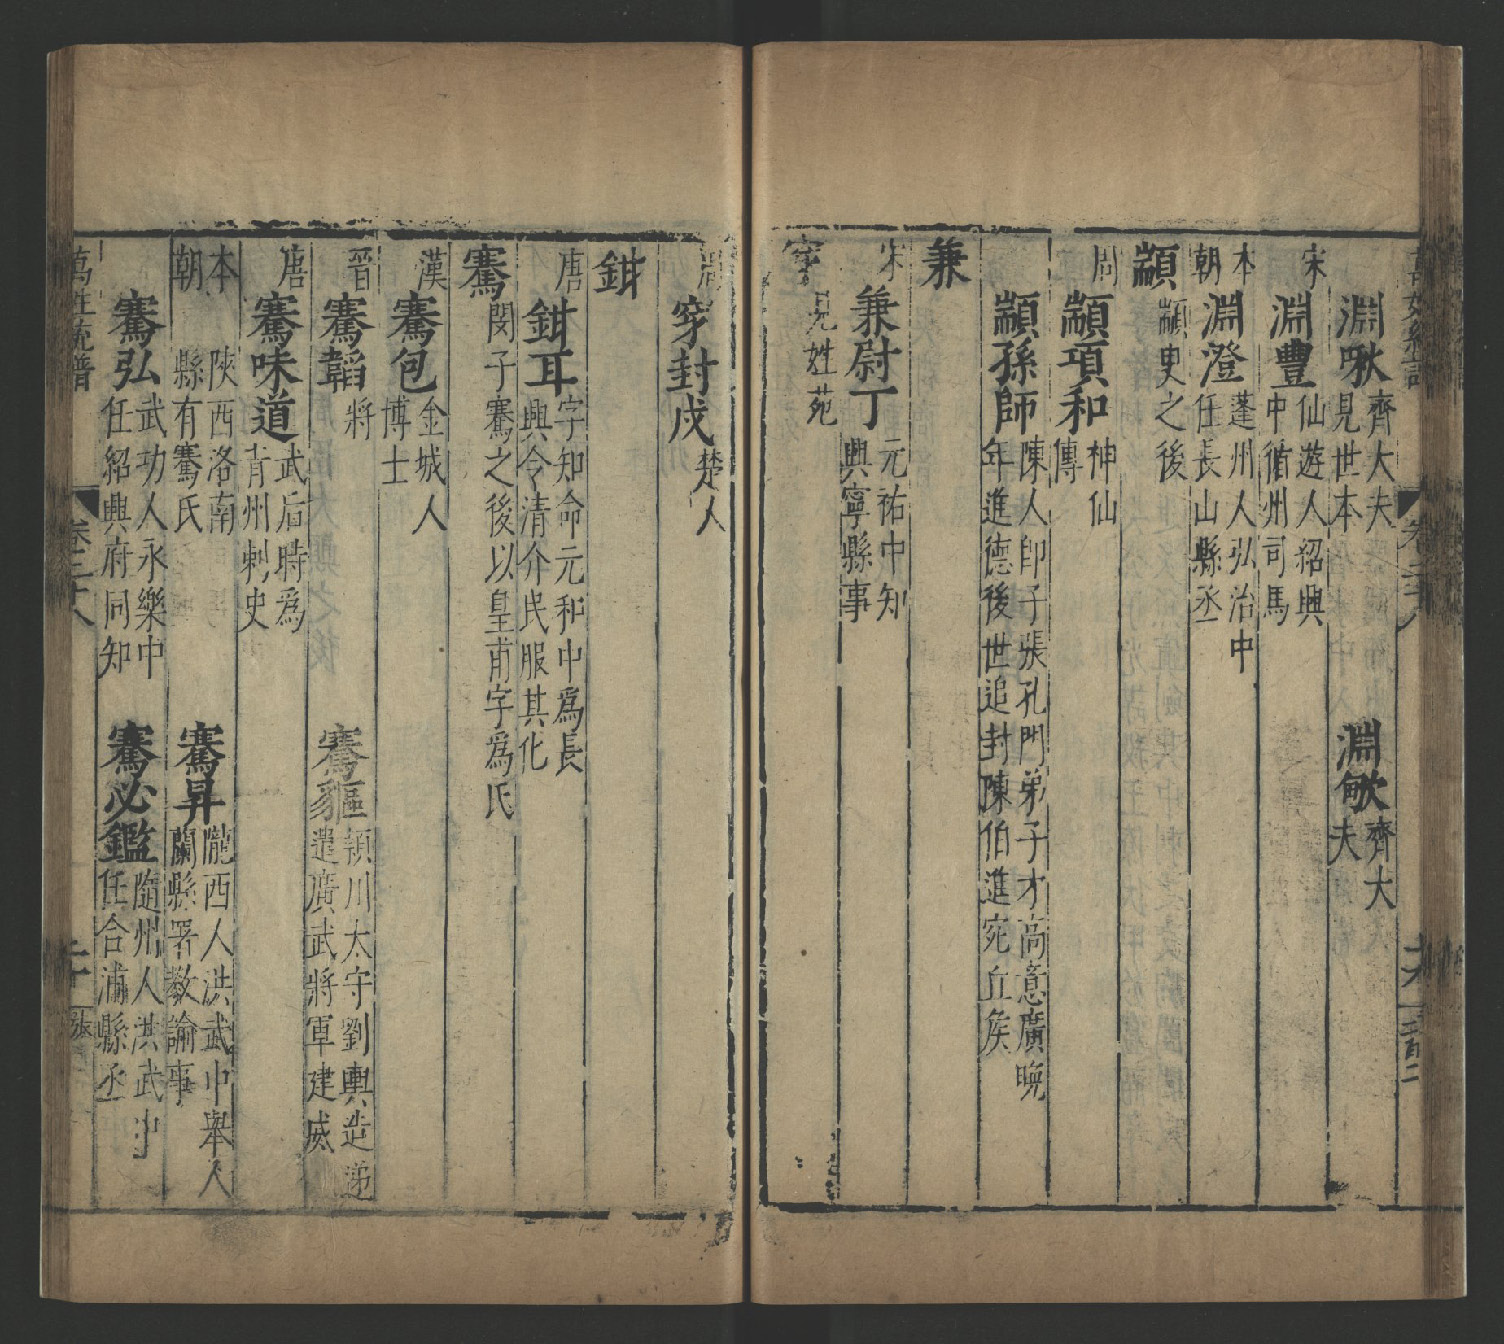 萬姓統譜 卷二十八
淵啾 齊大夫見世本 淵歒 齊大夫
宋 淵豐 仙遊人紹興中循州司馬
本朝 淵澄 蓬州人弘治中任長山縣丞
顓 顓史之後
周 顓項和 神仙傳
顓孫師 陳人卽子張孔門弟子才高意廣晚年進德後世追封陳伯進宛丘矦
兼
宋 兼尉丁 元祐中知興寧縣事
穿 見姓苑
周 穿封戍 楚人
鉗
唐 鉗耳 字知命元和中爲長興令清介民服其化
騫 閔子騫之後以皇甫字爲氏
漢 騫包 金城人博士
晉 騫韜 將 騫貙 潁川太守劉輿造遞遣廣武將軍建威
唐 騫味道 武后時爲青州刺史
本朝 陝西洛南縣有騫氏 騫昇 隴西人洪武中舉人蘭縣署教諭事
騫弘 武功人永樂中任紹興府同知 騫必鑑 隨州人洪武中任合浦縣丞
萬姓統譜 卷二十八 二十